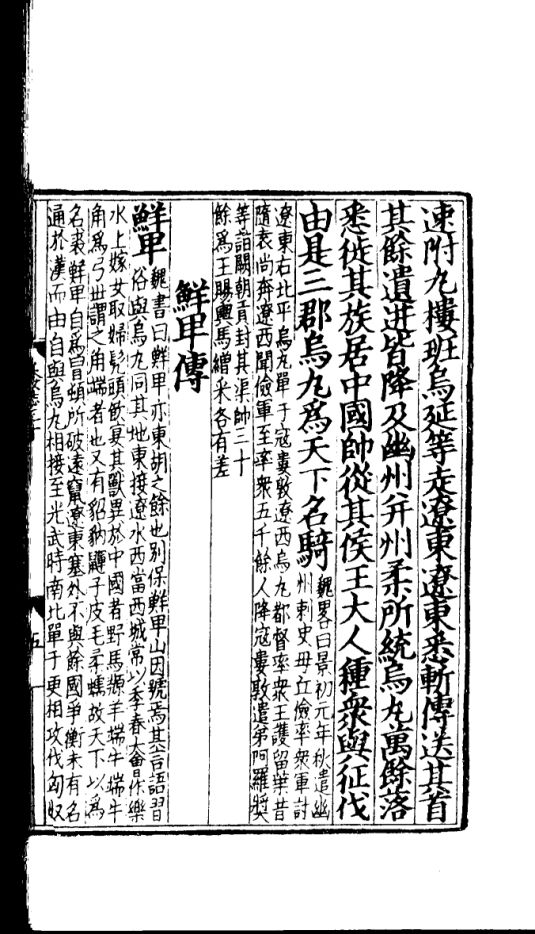 速附丸樓班烏延等走遼東遼東悉斬傳送其首
其餘遺迸皆降及幽州并州柔所統烏丸萬餘落
悉徙其族居中國帥從其侯王大人種衆與征伐
由是三郡烏丸爲天下名騎
魏畧曰景初元年秋遣幽
州刺史毋丘儉率衆軍討
遼東右北平烏丸單于寇婁敦遼西烏丸都督率衆王護留葉昔
隨袁尚奔遼西聞儉軍至率衆五千餘人降寇婁敦遣弟阿羅奬
等詣闕朝貢封其渠帥三十
餘爲王賜輿馬繒采各有差
鮮卑傳
鮮卑
魏書曰鮮卑亦東胡之餘也別保鮮卑山因號焉其言語習
俗與烏丸同其地東接遼水西當西城常以季春大會作樂
水上嫁女取婦髡頭飲宴其獸異於中國者野馬羱羊端牛端牛
角爲弓世謂之角端者也又有貂豽鼲子皮毛柔蠕故天下以爲
名裘鮮卑自爲冒頓所破遠竄遼東塞外不與餘國爭衡未有名
通於漢而由自與烏丸相接至光武時南北單于更相攻伐匈奴
五